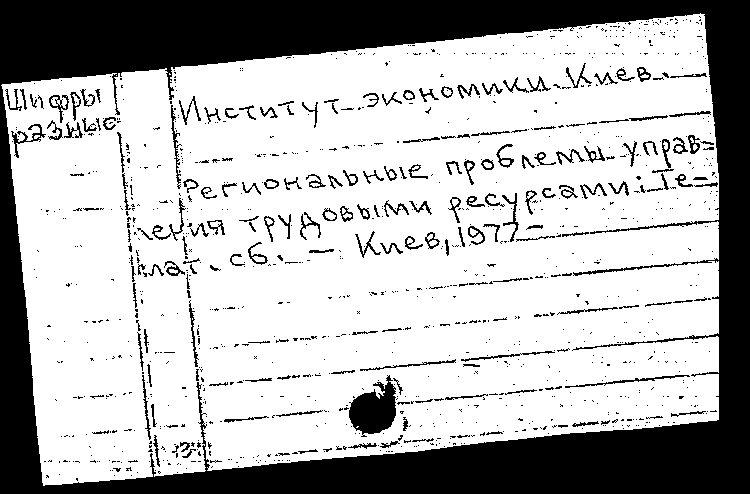 Шифры
разные
Институт экономики. Киев.
Региональные проблемы управ=
ления трудовыми ресурсами: Те-
мат. сб. — Киев, 1977-